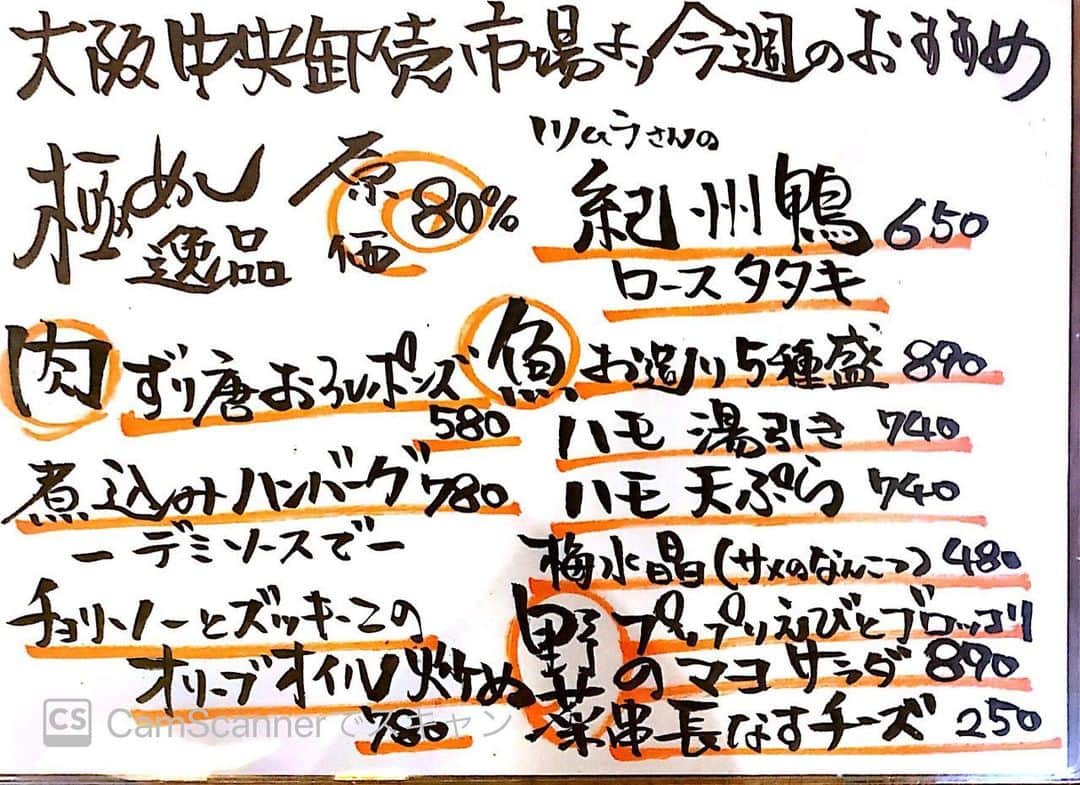 大阪中央卸売市場より今週のおすすめ
極めし逸品 原価80%
ツムラさんの
紀州鴨 650
ロースタタキ
肉
ずり唐おろしポンズ
580
煮込みハンバーグ 780
ーデミソースでー
チョリソーとズッキーニの
オリーブオイル炒め
780
魚
お造り5種盛 890
ハモ 湯引き 740
ハモ 天ぷら 740
梅水晶(サメのなんこつ) 480
野菜
プリップリえびとブロッコリ
のマヨサラダ 890
串長なすチーズ 250
CS CamScannerでスキャン